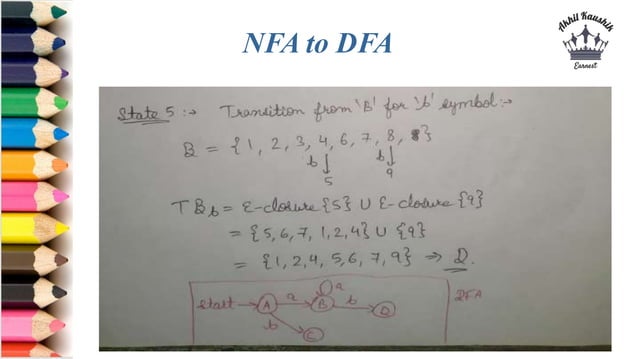 NFA to DFA
Akhil Kaushik
Earnest
State 5 :→ Transition from 'B' for 'b' symbol:→
B = {1, 2, 3, 4, 6, 7, 8, }
b b
5 9
T B b = ε-closure {5} ∪ ε-closure {9}
= {5, 6, 7, 1, 2, 4} ∪ {9}
= {1, 2, 4, 5, 6, 7, 9} ⇒ D.
a
start → A a B b D DFA
b
C